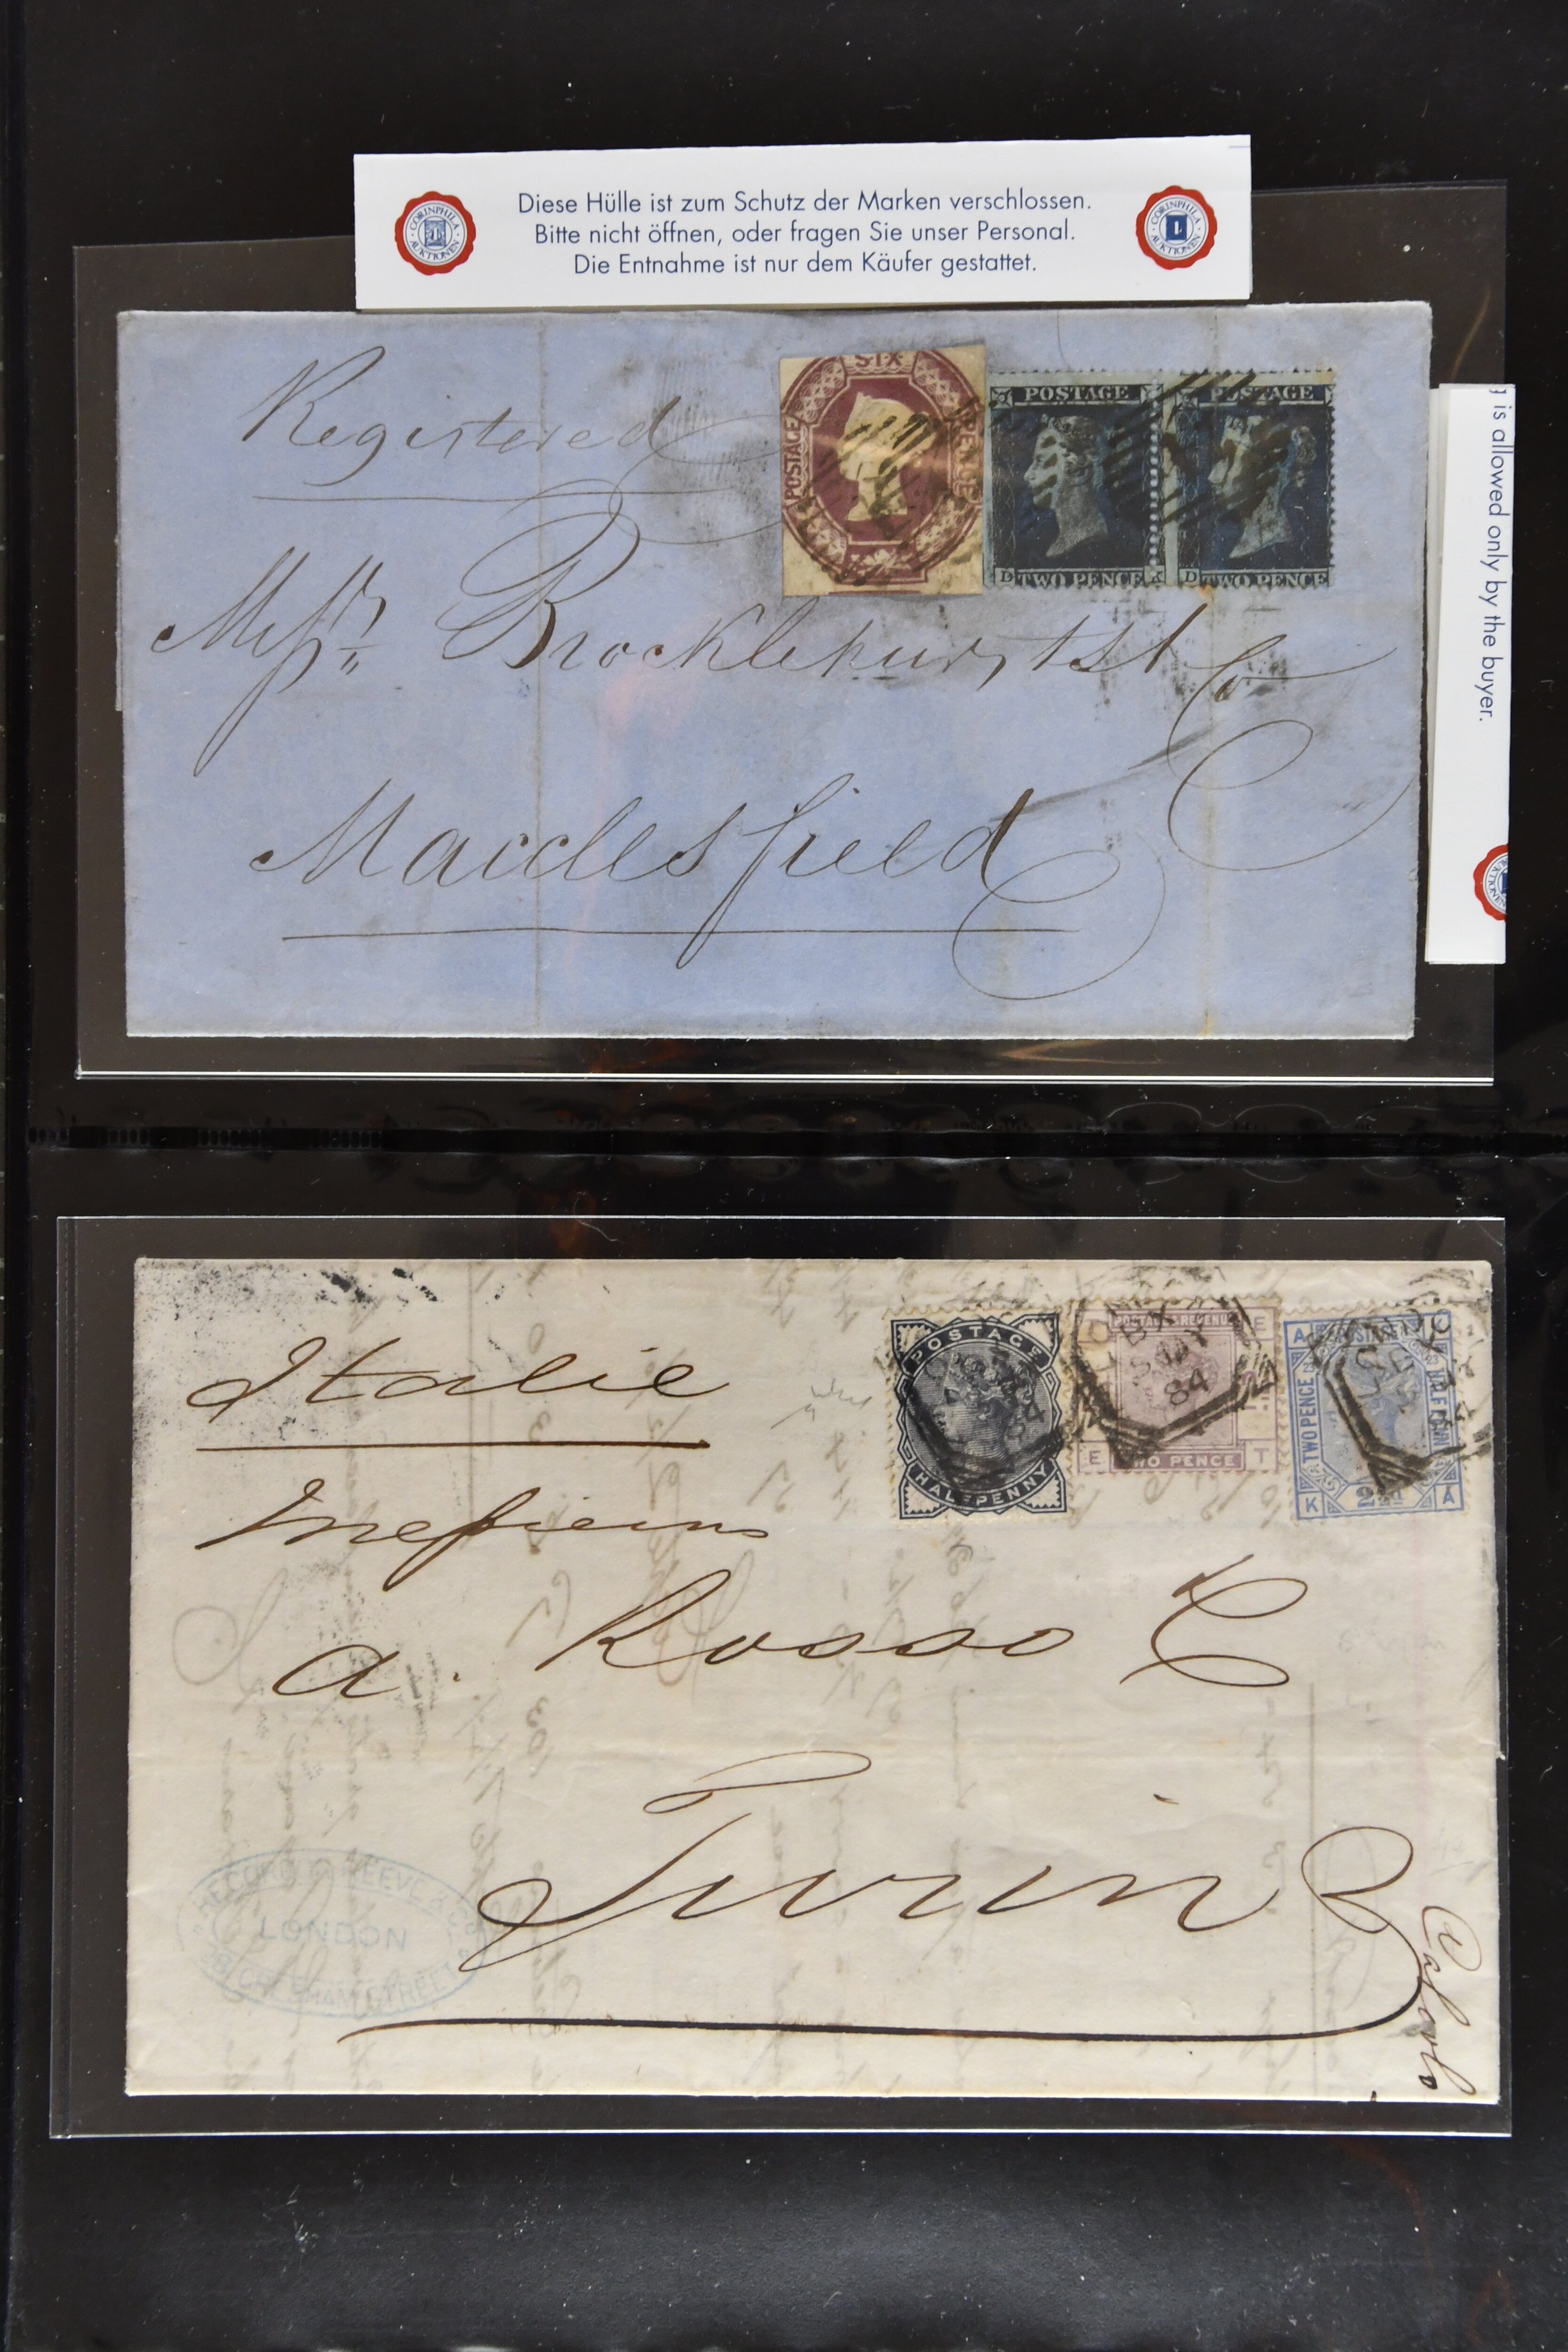 Diese Hülle ist zum Schutz der Marken verschlossen.
Bitte nicht öffnen, oder fragen Sie unser Personal.
Die Entnahme ist nur dem Käufer gestattet.
CORINPHILA AUKTIONEN
CORINPHILA AUKTIONEN
is allowed only by the buyer.
Registered
SIX PENCE
POSTAGE
POSTAGE
POSTAGE
D TWO PENCE K
D TWO PENCE
Messrs Brocklehurst & Co
Macclesfield
Italie
POSTAGE
HALFPENNY
POSTAGE & REVENUE
E
E TWO PENCE T
84
A
TWO PENCE HALFPENNY
K 2½d A
Messieurs
a. Rosso C
Turin
LONDON